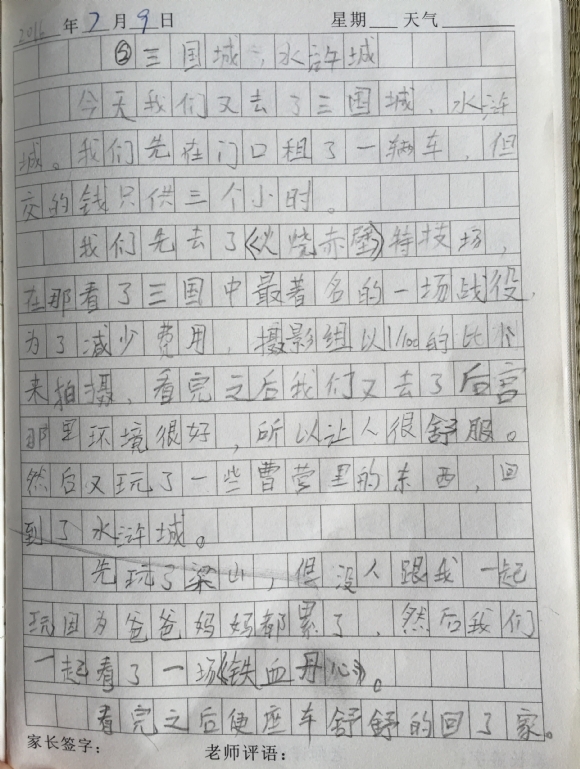 2016年7月9日 星期 天气
②三国城、水浒城
今天我们又去了三国城、水浒
城。我们先在门口租了一辆车，但
交的钱只供三个小时。
我们先去了《火烧赤壁》特技场，
在那看了三国中最著名的一场战役，
为了减少费用，摄影组以1/100的比
来拍摄，看完之后我们又去了后宫
那里环境很好，所以让人很舒服。
然后又玩了一些曹营里的东西，回
到了水浒城。
先玩了梁山，但没人跟我一起
玩因为爸爸妈妈都累了，然后我们
一起看了一场《铁血丹心》。
看完之后便座车舒舒的回了家。
家长签字： 老师评语：